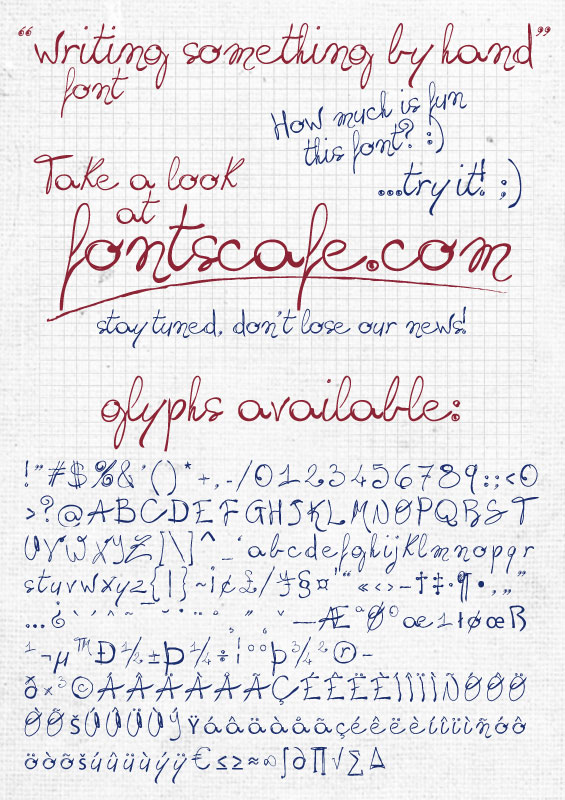 “writing something by hand”
font
How much is fun
this font? :)
...try it!. ;)
Take a look
at
fontscafe.com
stay tuned, don't lose our news!
glyphs available:
!"#$%&'()*+,-/0123456789:;<O
>?@ABCDEFGHIJKLMNOPQRST
UVWXYZ[\]^_`abcdefghijklmnopqr
stuvwxyz{|}~¡¢£/¥§¤'“«‹›–†‡·¶•‚„”
…¿`´ˆ˜¯˘˙¨˚¸˝˛ˇ—ƪØºæıłøœß
¹¬µ™Ð½±Þ¼÷¦°þ¾²®−
ð×³©ÁÂÄÀÅÃÇÉÊËÈÍÎÏÌÑÓÔÖ
ÒÕŠÚÛÜÙÝŸáâäàåãçéêëèíîïìñóô
öòõšúûüùýÿ€≤≥≈∞∫∂∏√∑∆